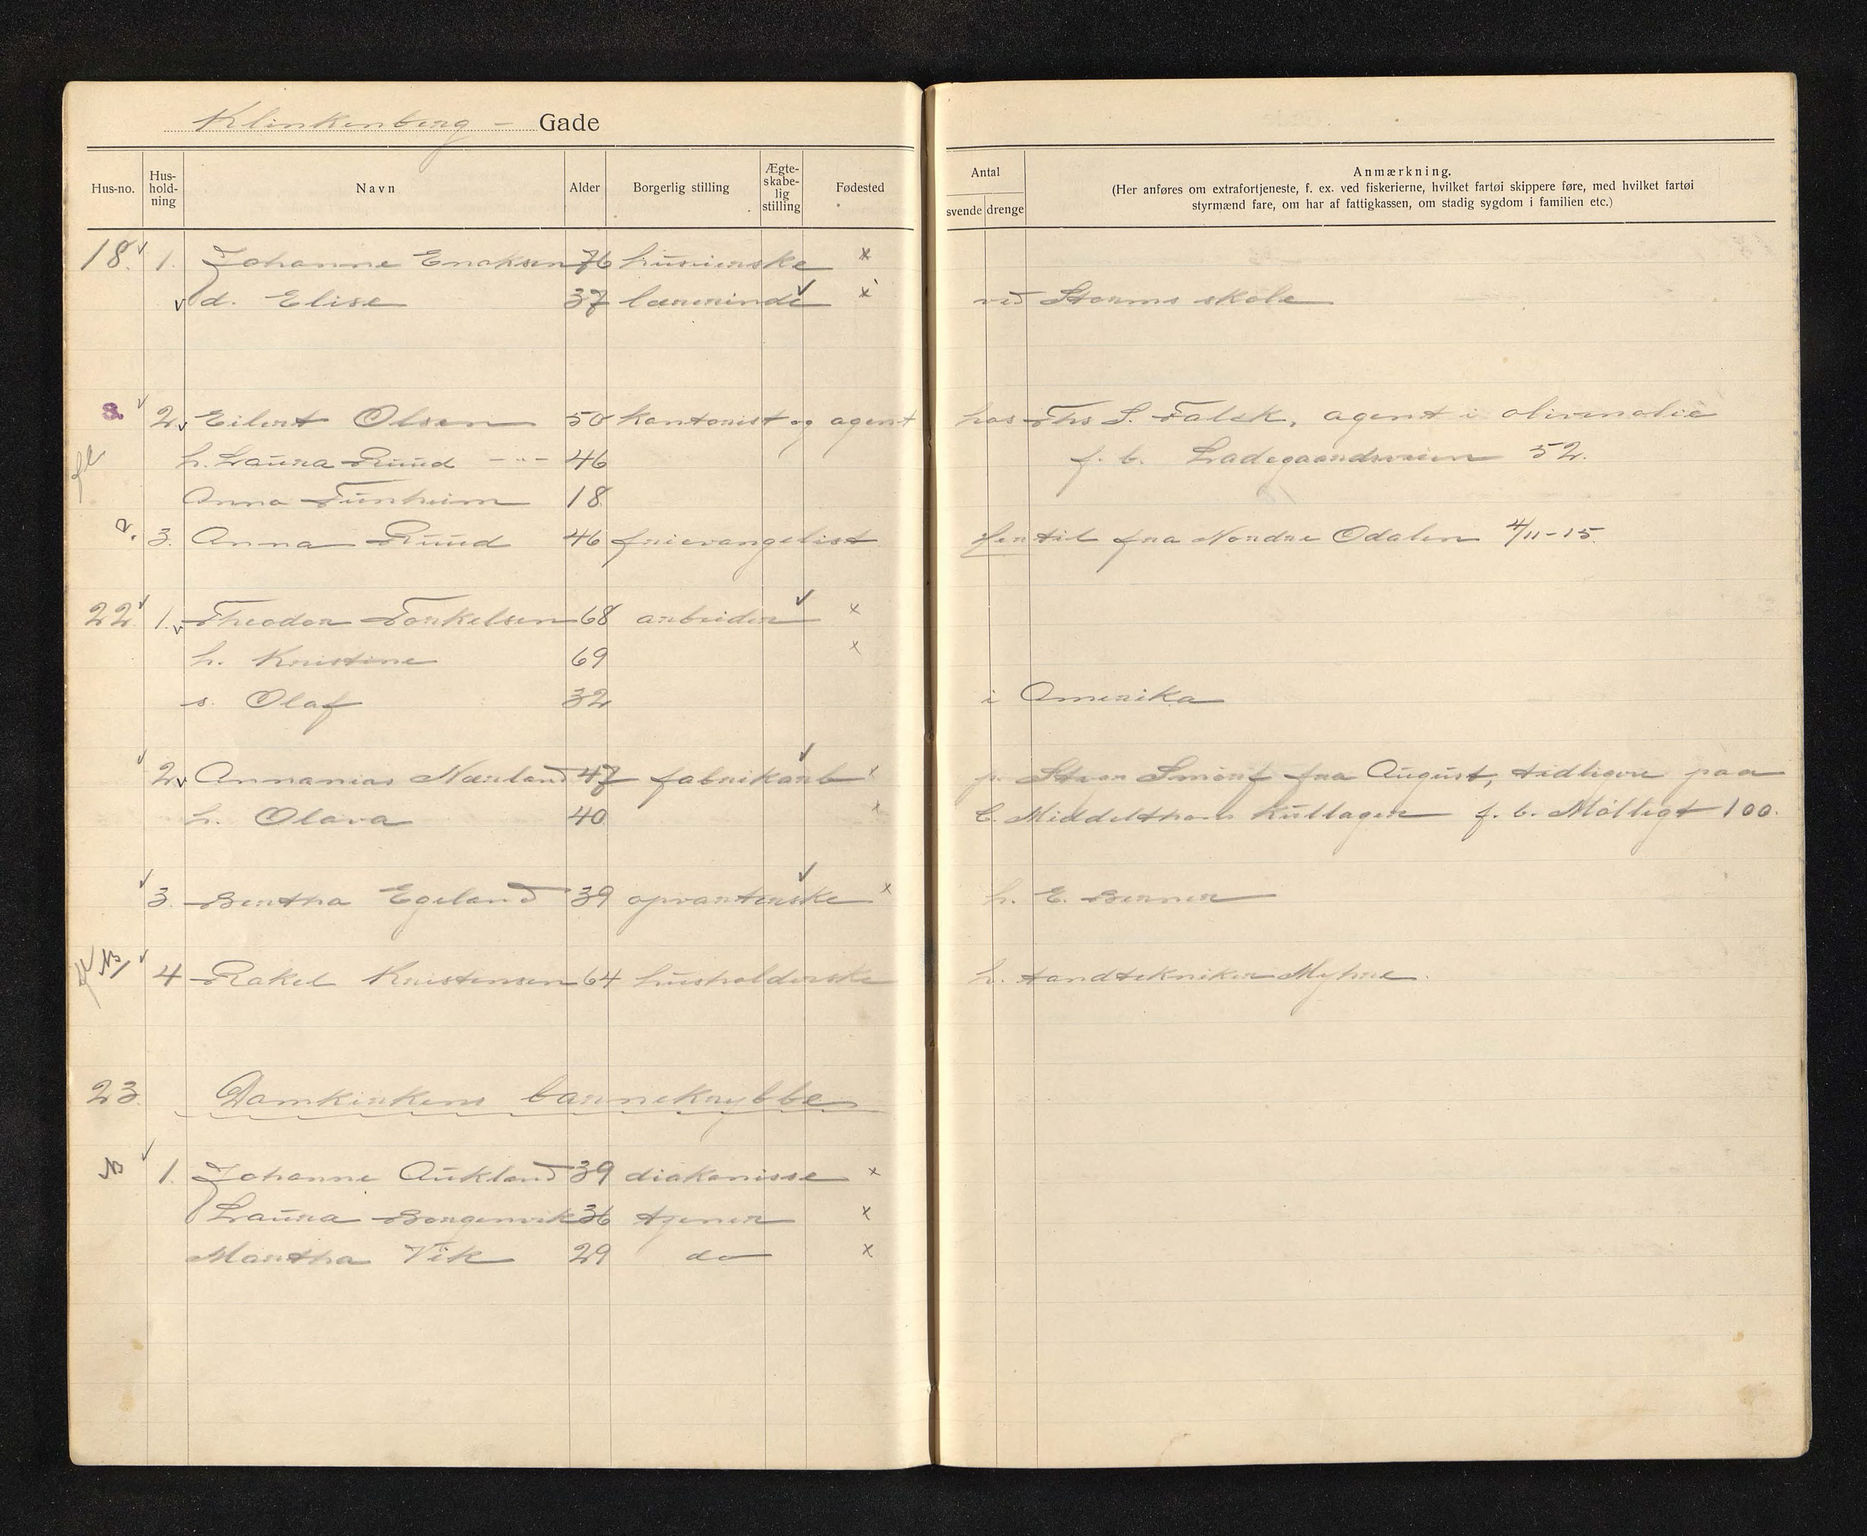 Klinkenberg - Gade
Hus-no. Hus-hold-ning Navn Alder Borgerlig stilling Ægte-skabe-lig stilling Fødested
Antal svende drenge
Anmærkning.
(Her anføres om extrafortjeneste, f. ex. ved fiskerierne, hvilket fartøi skippere føre, med hvilket fartøi
styrmænd fare, om har af fattigkassen, om stadig sygdom i familien etc.)
18. 1. Johanne Enoksen 76 husierske x
d. Elise 37 lærerinde x ved Storms skole
8. 2. Eilert Olsen 50 kontorist og agent hos Ths S. Falck, agent i olivenolie
fl h. Laura Ruud -"- 46 f. b. Ladegaardsveien 52.
Anna Tunheim 18
2. 3. Anna Ruud 46 frievangelist fl til fra Nordre Odalen 4/11-15.
22. 1. Theodor Torkelsen 68 arbeider x
h. Kristine 69 x
s. Olaf 32 i Amerika
2. Annanias Nærland 47 fabrikarb x p. Smörf fra August, tidligere paa
h. Olava 40 x C. Middelthons kullager f. b. Møllegt 100.
3. Bertha Egeland 39 opvarterske x h. E. Berner
fl N/ 4 Rakel Kristensen 64 husholderske h. tandtekniker Myhre.
23. Domkirkens barnekrybbe
N 1. Johanne Aukland 39 diakonisse x
Laura Borgenvik 36 tjener x
Martha Vik 29 do x